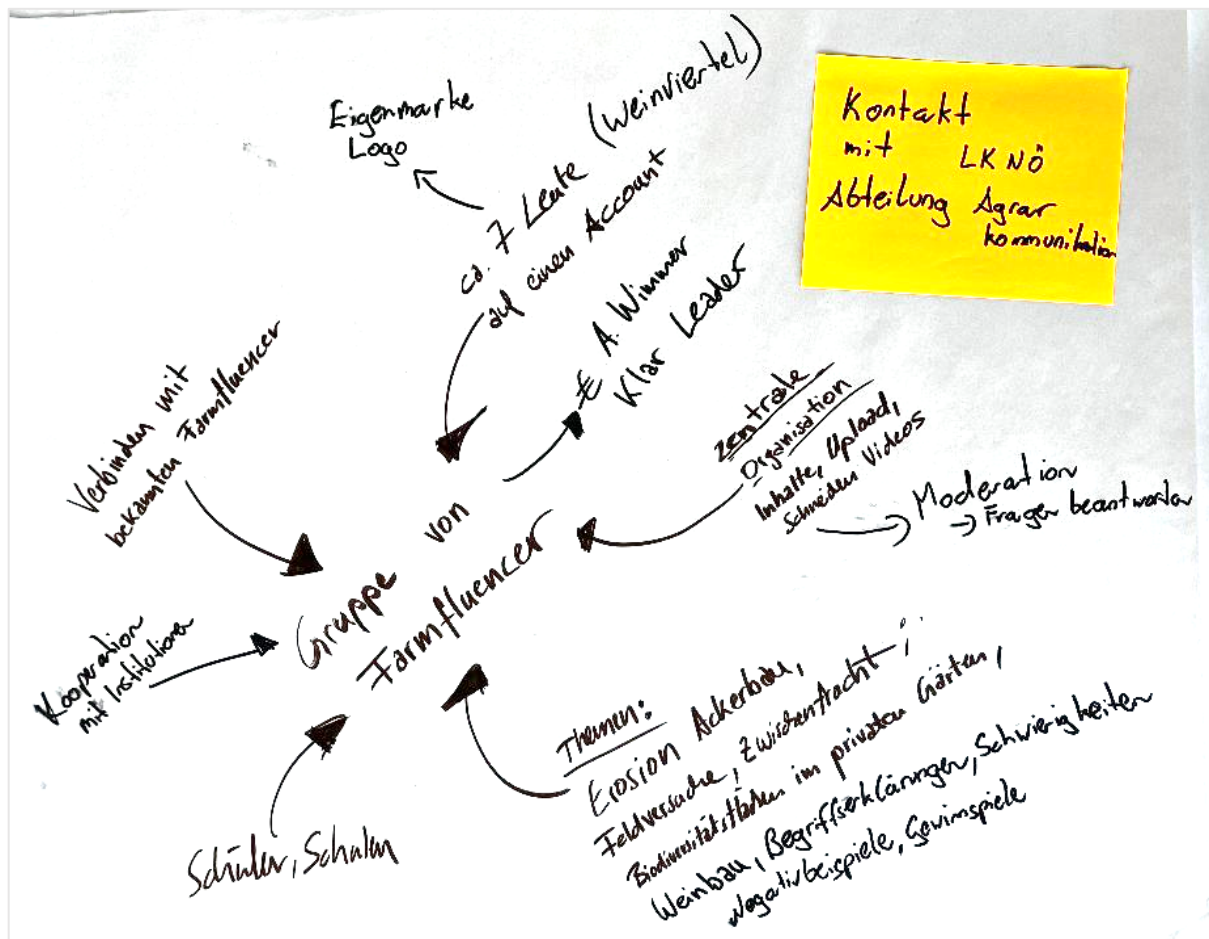 Eigenmarke
Logo
ca. 7 Leute (Weinviertel)
auf einen Account
Kontakt
mit LK NÖ
Abteilung Agrar
kommunikation
€ A. Wimmer
Klar Leader
Verbinden mit
bekannten Farmfluencer
Zentrale
Organisation
Inhalte, Upload,
Schneiden Videos
Moderation
→ Fragen beantworten
Gruppe von
Farmfluencer
Kooperation
mit Institutionen
Schüler, Schulen
Themen:
Erosion Ackerbau,
Feldversuche, Zwischenfrucht,
Biodiversitätsflächen im privaten Gärten,
Weinbau, Begriffserklärungen, Schwierigkeiten
Negativbeispiele, Gewinnspiele